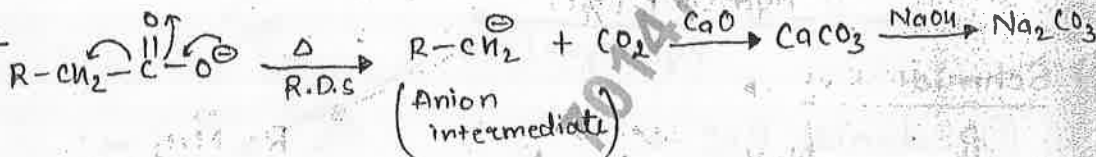 R-CH₂-C(=O)-O⊖ →(Δ, R.D.S) R-CH₂⊖ + CO₂ →(CaO) CaCO₃ →(NaOH) Na₂CO₃
(Anion
intermediate)